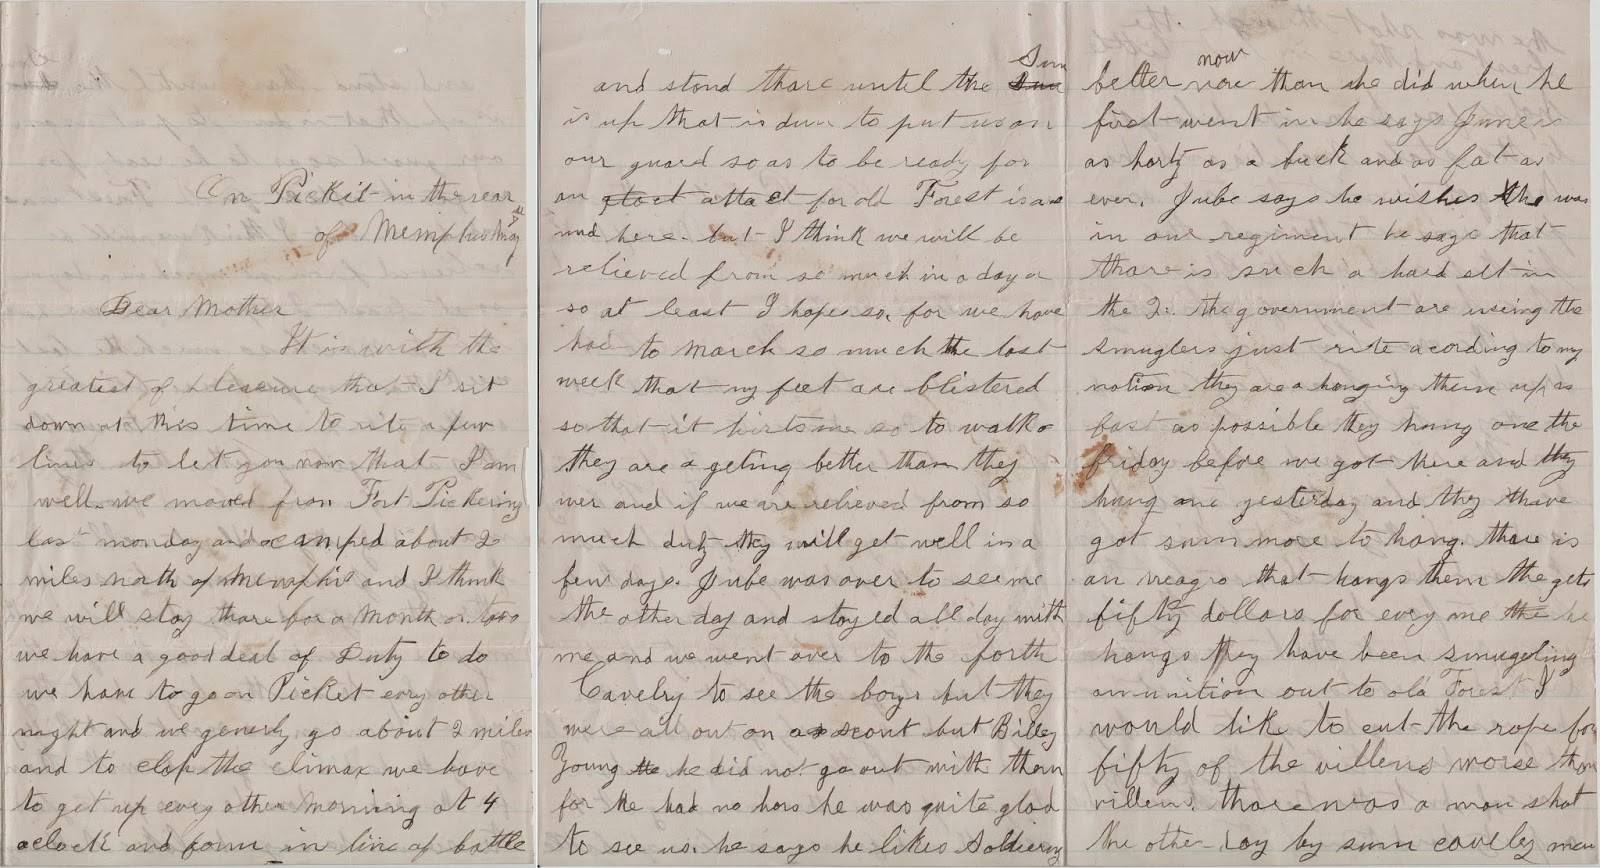 On Pickit in the rear
of Memphis May
Dear Mother
It is with the
greatest of pleasure that I sit
down at this time to rite a few
lines to let you now that I am
well. we moved from Fort Pickering
last monday and camped about 2
miles north of Memphis and I think
we will stay thare for a month or two
we have a good deal of Duty to do
we have to go on Picket evry other
night and we generly go about 2 miles
and to clap the climax we have
to get up every other morning at 4
oclock and form in line of battle
and stand thare until the Sun
is up that is dun to put us on
our guard so as to be ready for
an attact for old Forest is a
und here. but I think we will be
relieved from so much in a day or
so at least I hopes so, for we have
had to march so much the last
week that my feet are blistered
so that it hirts me so to walk
they are a geting better than they
wer and if we are relieved from so
much duty they will get well in a
few days. Jube was over to see me
the other day and stayed all day with
me and we went over to the forth
Cavelry to see the boys but they
were all out on a scout but Billey
Young he did not go out with them
for he had no hors he was quite glad
to see us. he says he likes Soldiering
better now than he did when he
first went in he says June is
as harty as a buck and as fat as
ever. Jube says he wishes he was
in our regiment he says that
thare is such a hard set in
the 2. the government are using the
smuglers just rite acording to my
notion they are a hanging them up as
fast as possible they hung one the
friday before we got here and they
hung one yesterday and they have
got sum more to hang. thare is
an neagro that hangs them he gets
fifty dollars for evry one he
hangs they have been smugeling
amunition out to old Forest I
would like to cut the rope for
fifty of the villens worse than
villens. thare was a man shot
the other day by sum cavelry men